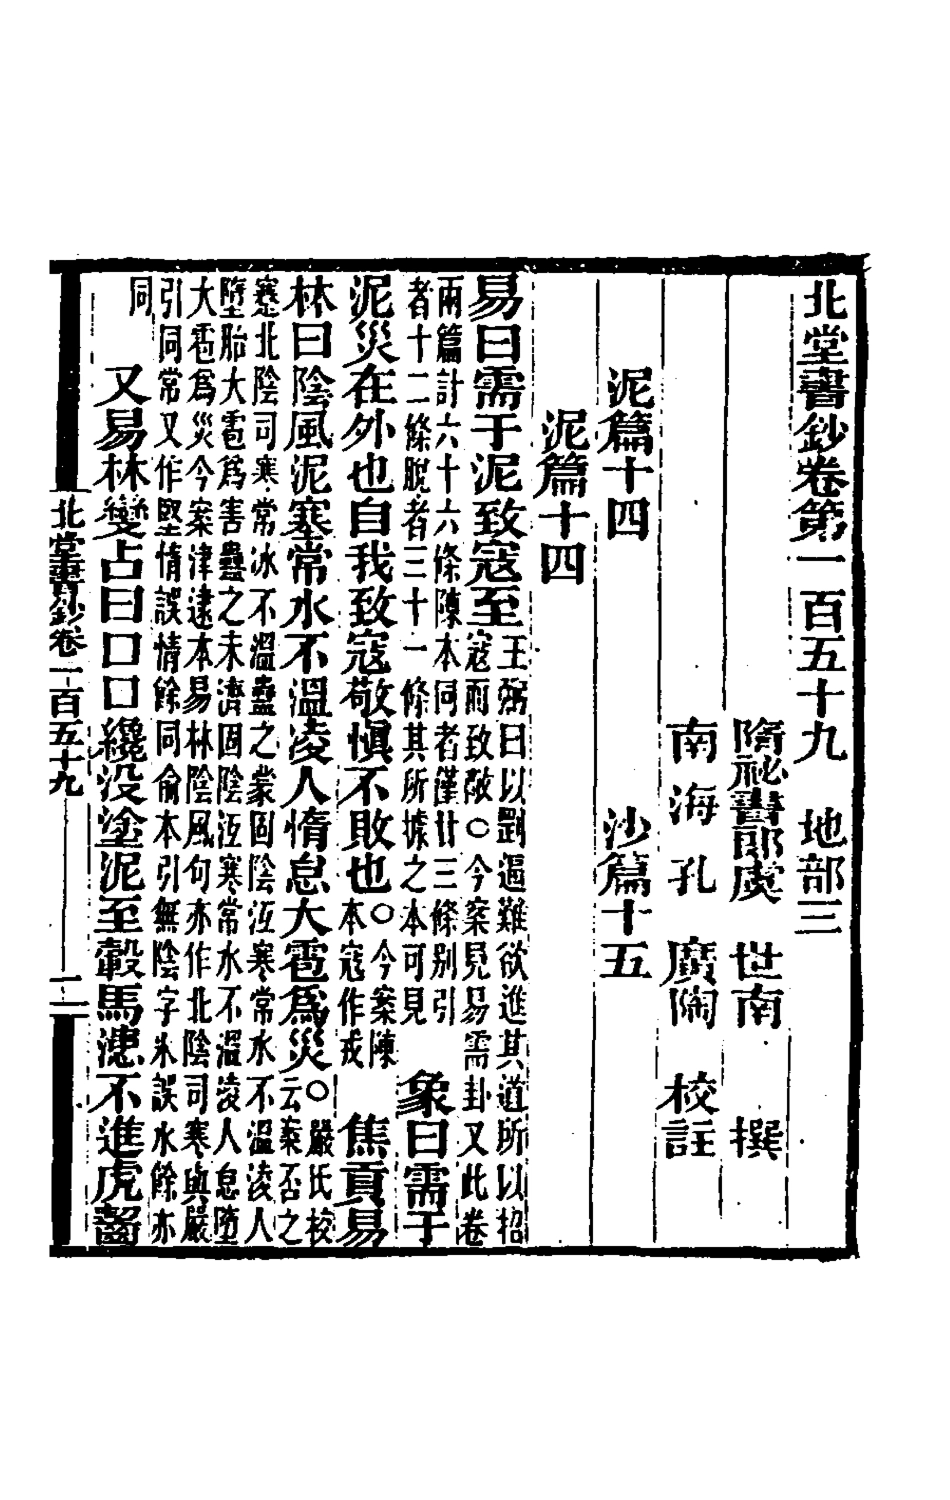 北堂書鈔卷第一百五十九　地部三
隋祕書郎虞　世南　撰
南海孔　廣陶　校註
泥篇十四　沙篇十五
泥篇十四
易曰需于泥致寇至王弼曰以剛逼難欲進其道所以招
寇而致敵○今案見易需卦又此卷
兩篇計六十六條陳本同者僅廿三條別引
者十二條脫者三十一條其所據之本可見　象曰需于
泥災在外也自我致寇敬慎不敗也○今案陳
本寇作戎　焦貢易
林曰陰風泥塞常水不溫凌人惰怠大雹爲災○嚴氏校
云案否之
蹇北陰司寒常冰不溫蠱之蒙固陰沍寒常水不溫凌人
墮胎大雹爲害蠱之未濟固陰沍寒常水不溫凌人怠墮
大雹爲災今案津逮本易林陰風句亦作北陰司寒與嚴
引同常又作堅情誤惰餘同俞本引無陰字氷誤水餘亦
同　又易林變占曰口口纔没塗泥至轂馬濾不進虎齧
北堂書鈔卷一百五十九　一